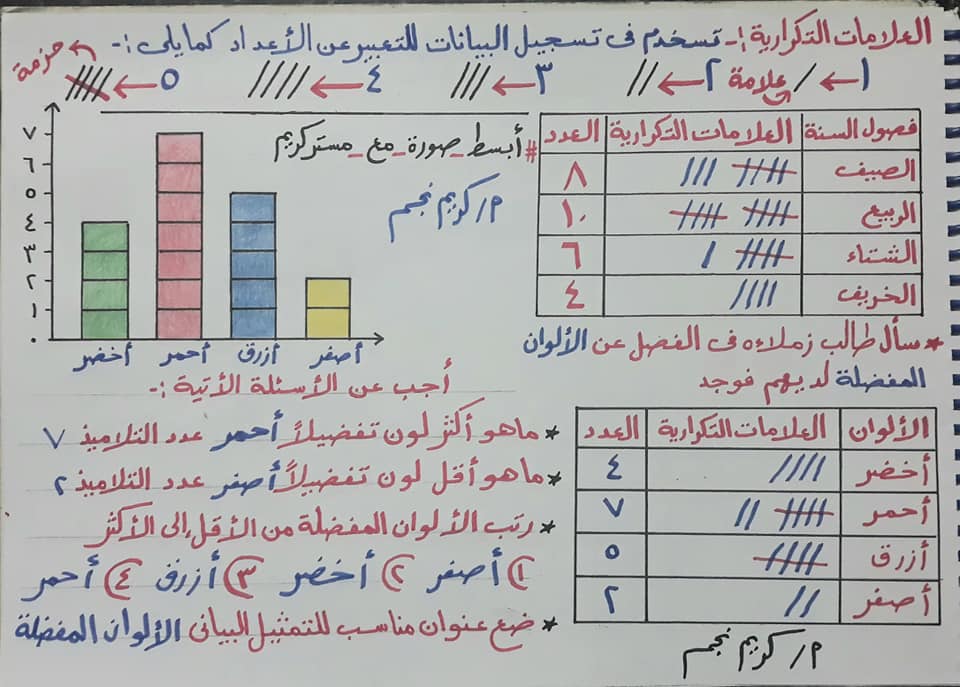 العلامات التكرارية :- تستخدم فى تسجيل البيانات للتعبير عن الأعداد كمايلى :-
١ ← / علامة ٢ ← // ٣ ← /// ٤ ← //// ٥ ← حزمة
فصول السنة العلامات التكرارية العدد
الصيف ٨
الربيع ١٠
الشتاء ٦
الخريف ٤
#أبسط_صورة_مع_مستركريم
م/ كريم نجم
٧
٦
٥
٤
٣
٢
١
٠
أخضر أحمر أزرق أصفر
* سأل طالب زملاءه فى الفصل عن الألوان
المفضلة لديهم فوجد
الألوان العلامات التكرارية العدد
أخضر //// ٤
أحمر ٧
أزرق ٥
أصفر // ٢
م/ كريم نجم
أجب عن الأسئلة الأتية :-
* ماهو أكثر لون تفضيلاً أحمر عدد التلاميذ ٧
* ماهو أقل لون تفضيلاً أصفر عدد التلاميذ ٢
* رتب الألوان المفضلة من الأقل إلى الأكثر
١) أصفر ٢) أخضر ٣) أزرق ٤) أحمر
* ضع عنوان مناسب للتمثيل البيانى الألوان المفضلة